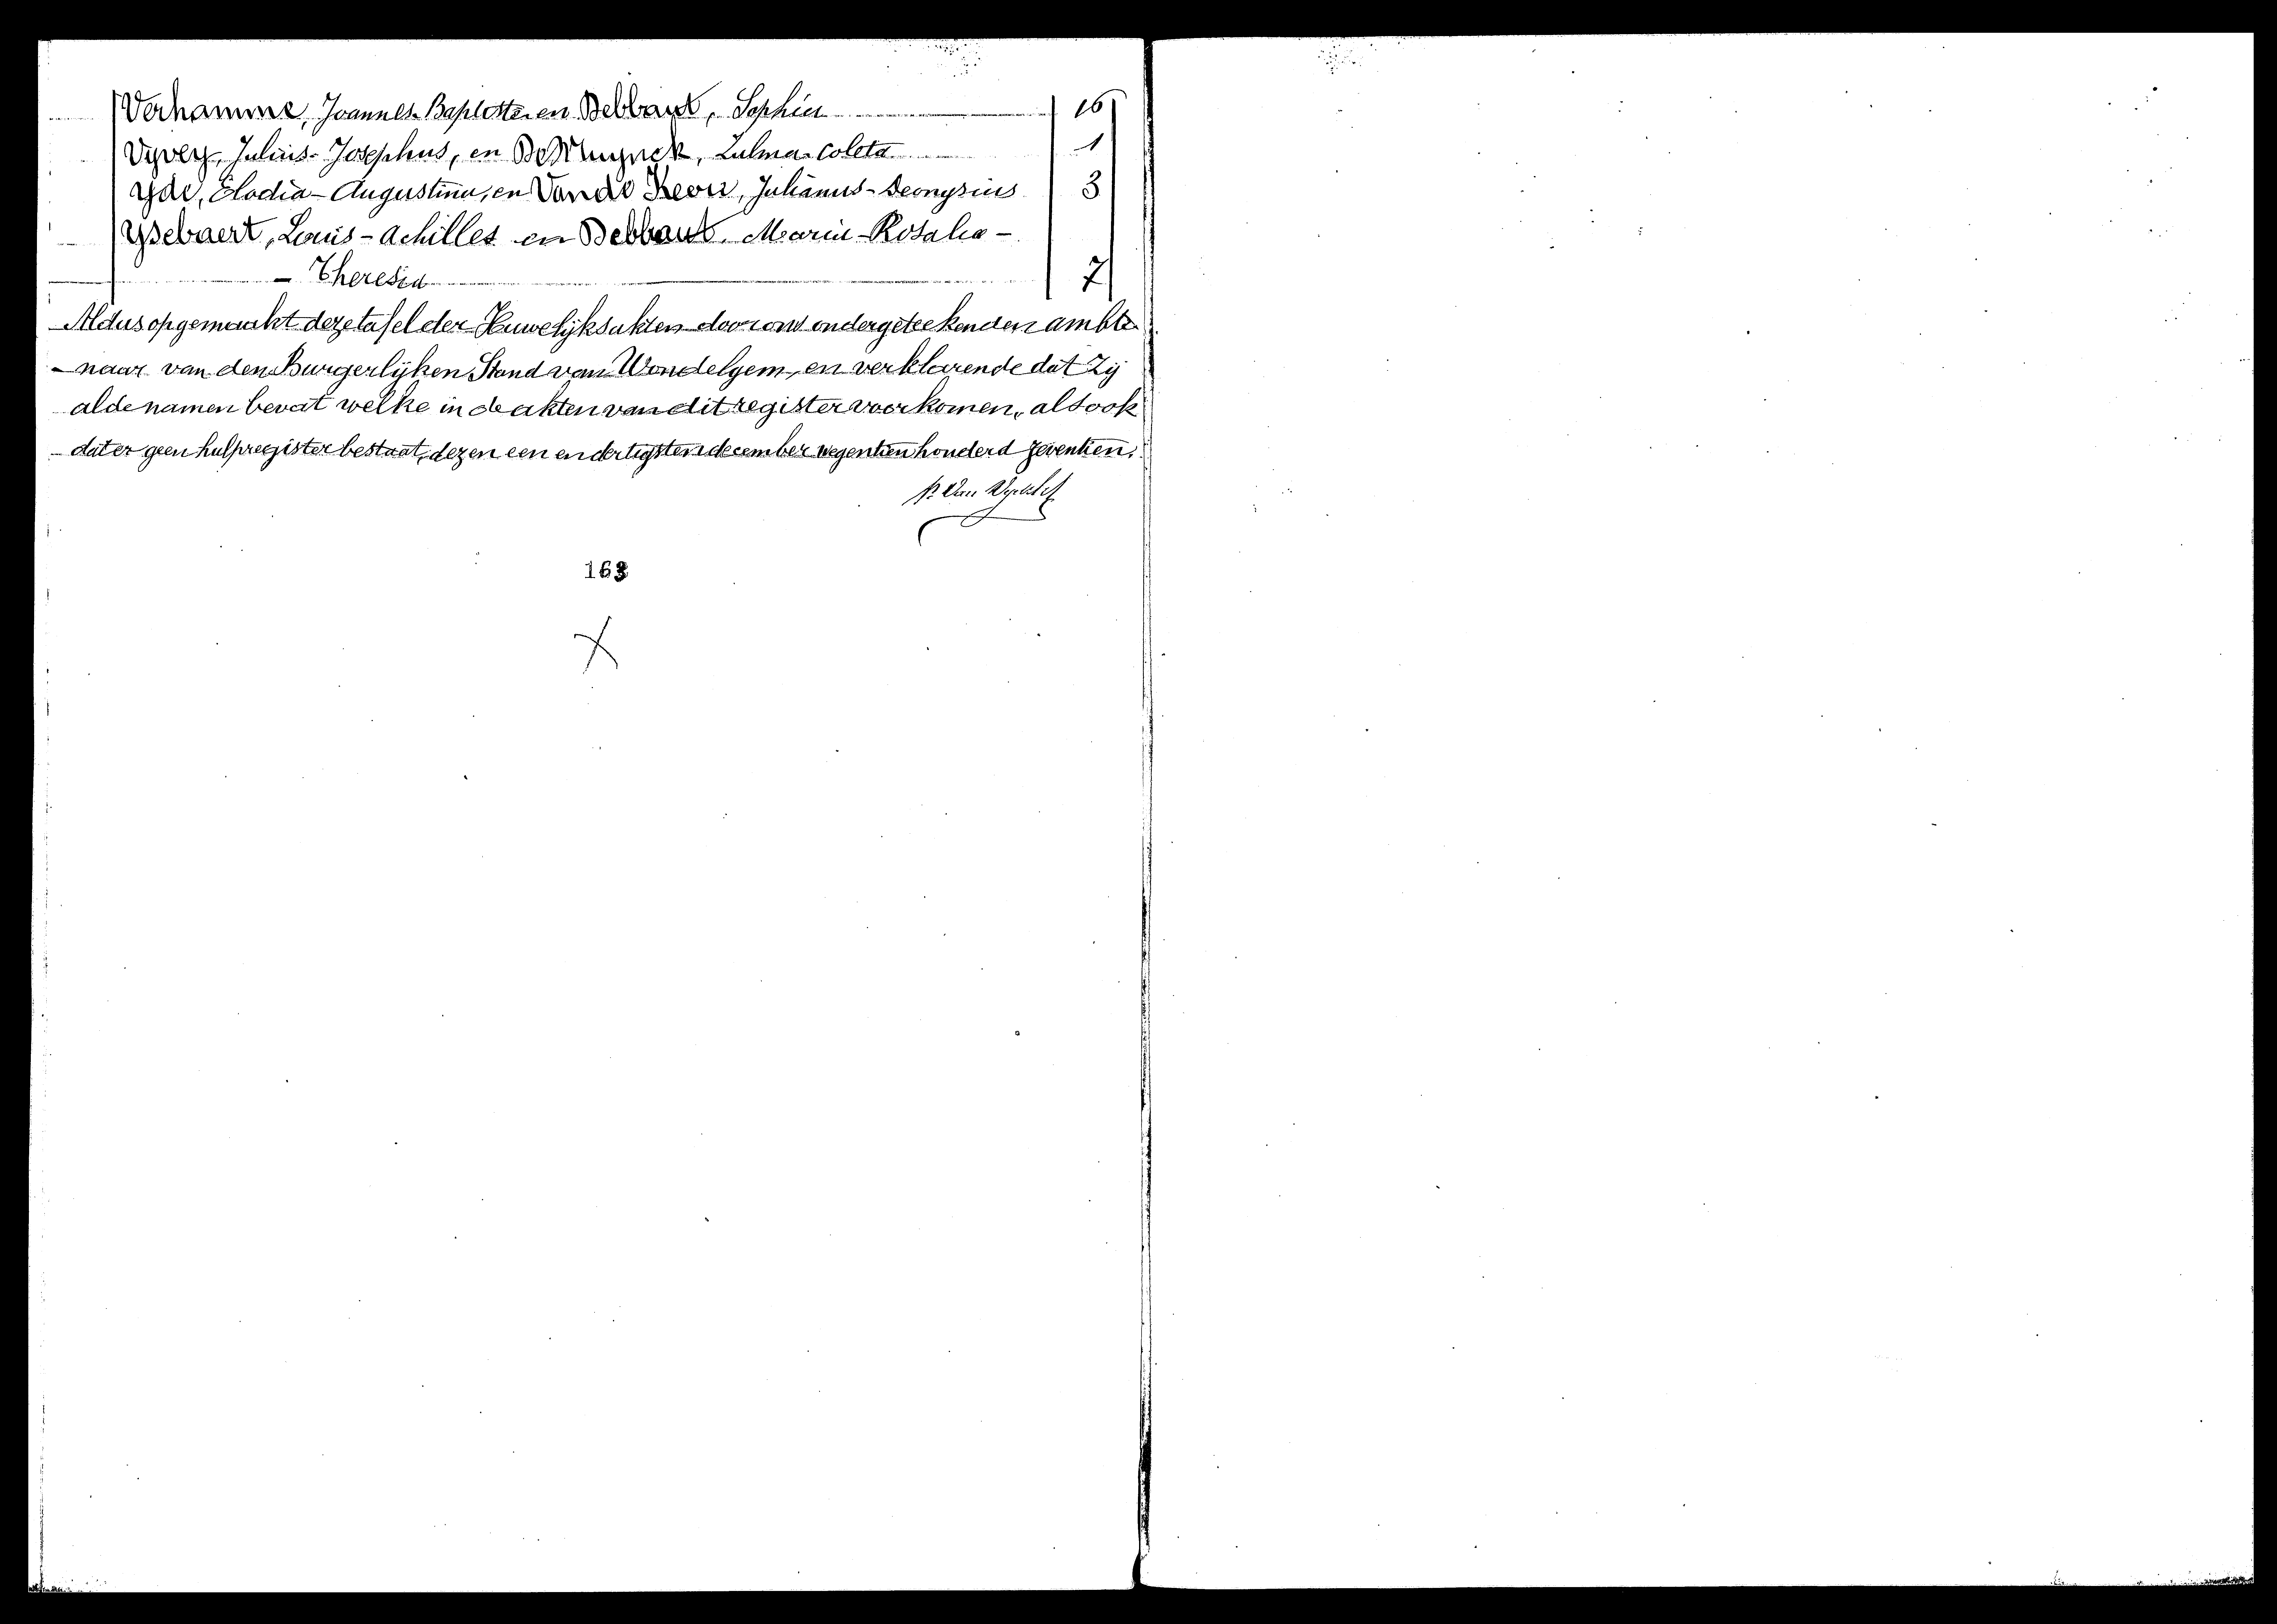 Verhamme, Joannes-Baptiste en Bebbaut, Sophia 16
Vyvey, Julius-Josephus, en De Muynck, Zulma-Coleta 1
Yde, Elodia-Augustina, en Vande Keere, Julianus-Deonysius 3
Ysebaert, Louis-Achilles en Bebbaut, Maria-Rosalia-
- Theresia 7
Aldus opgemaakt deze tafel der Huwelijksakten door ons ondergeteekenden ambte
-naar van den Burgerlijken Stand van Wondelgem, en verklarende dat zij
al de namen bevat welke in de akten van dit register voorkomen, alsook
dat er geen hulpregister bestaat, dezen een en dertigsten december negentien honderd zeventien.
163